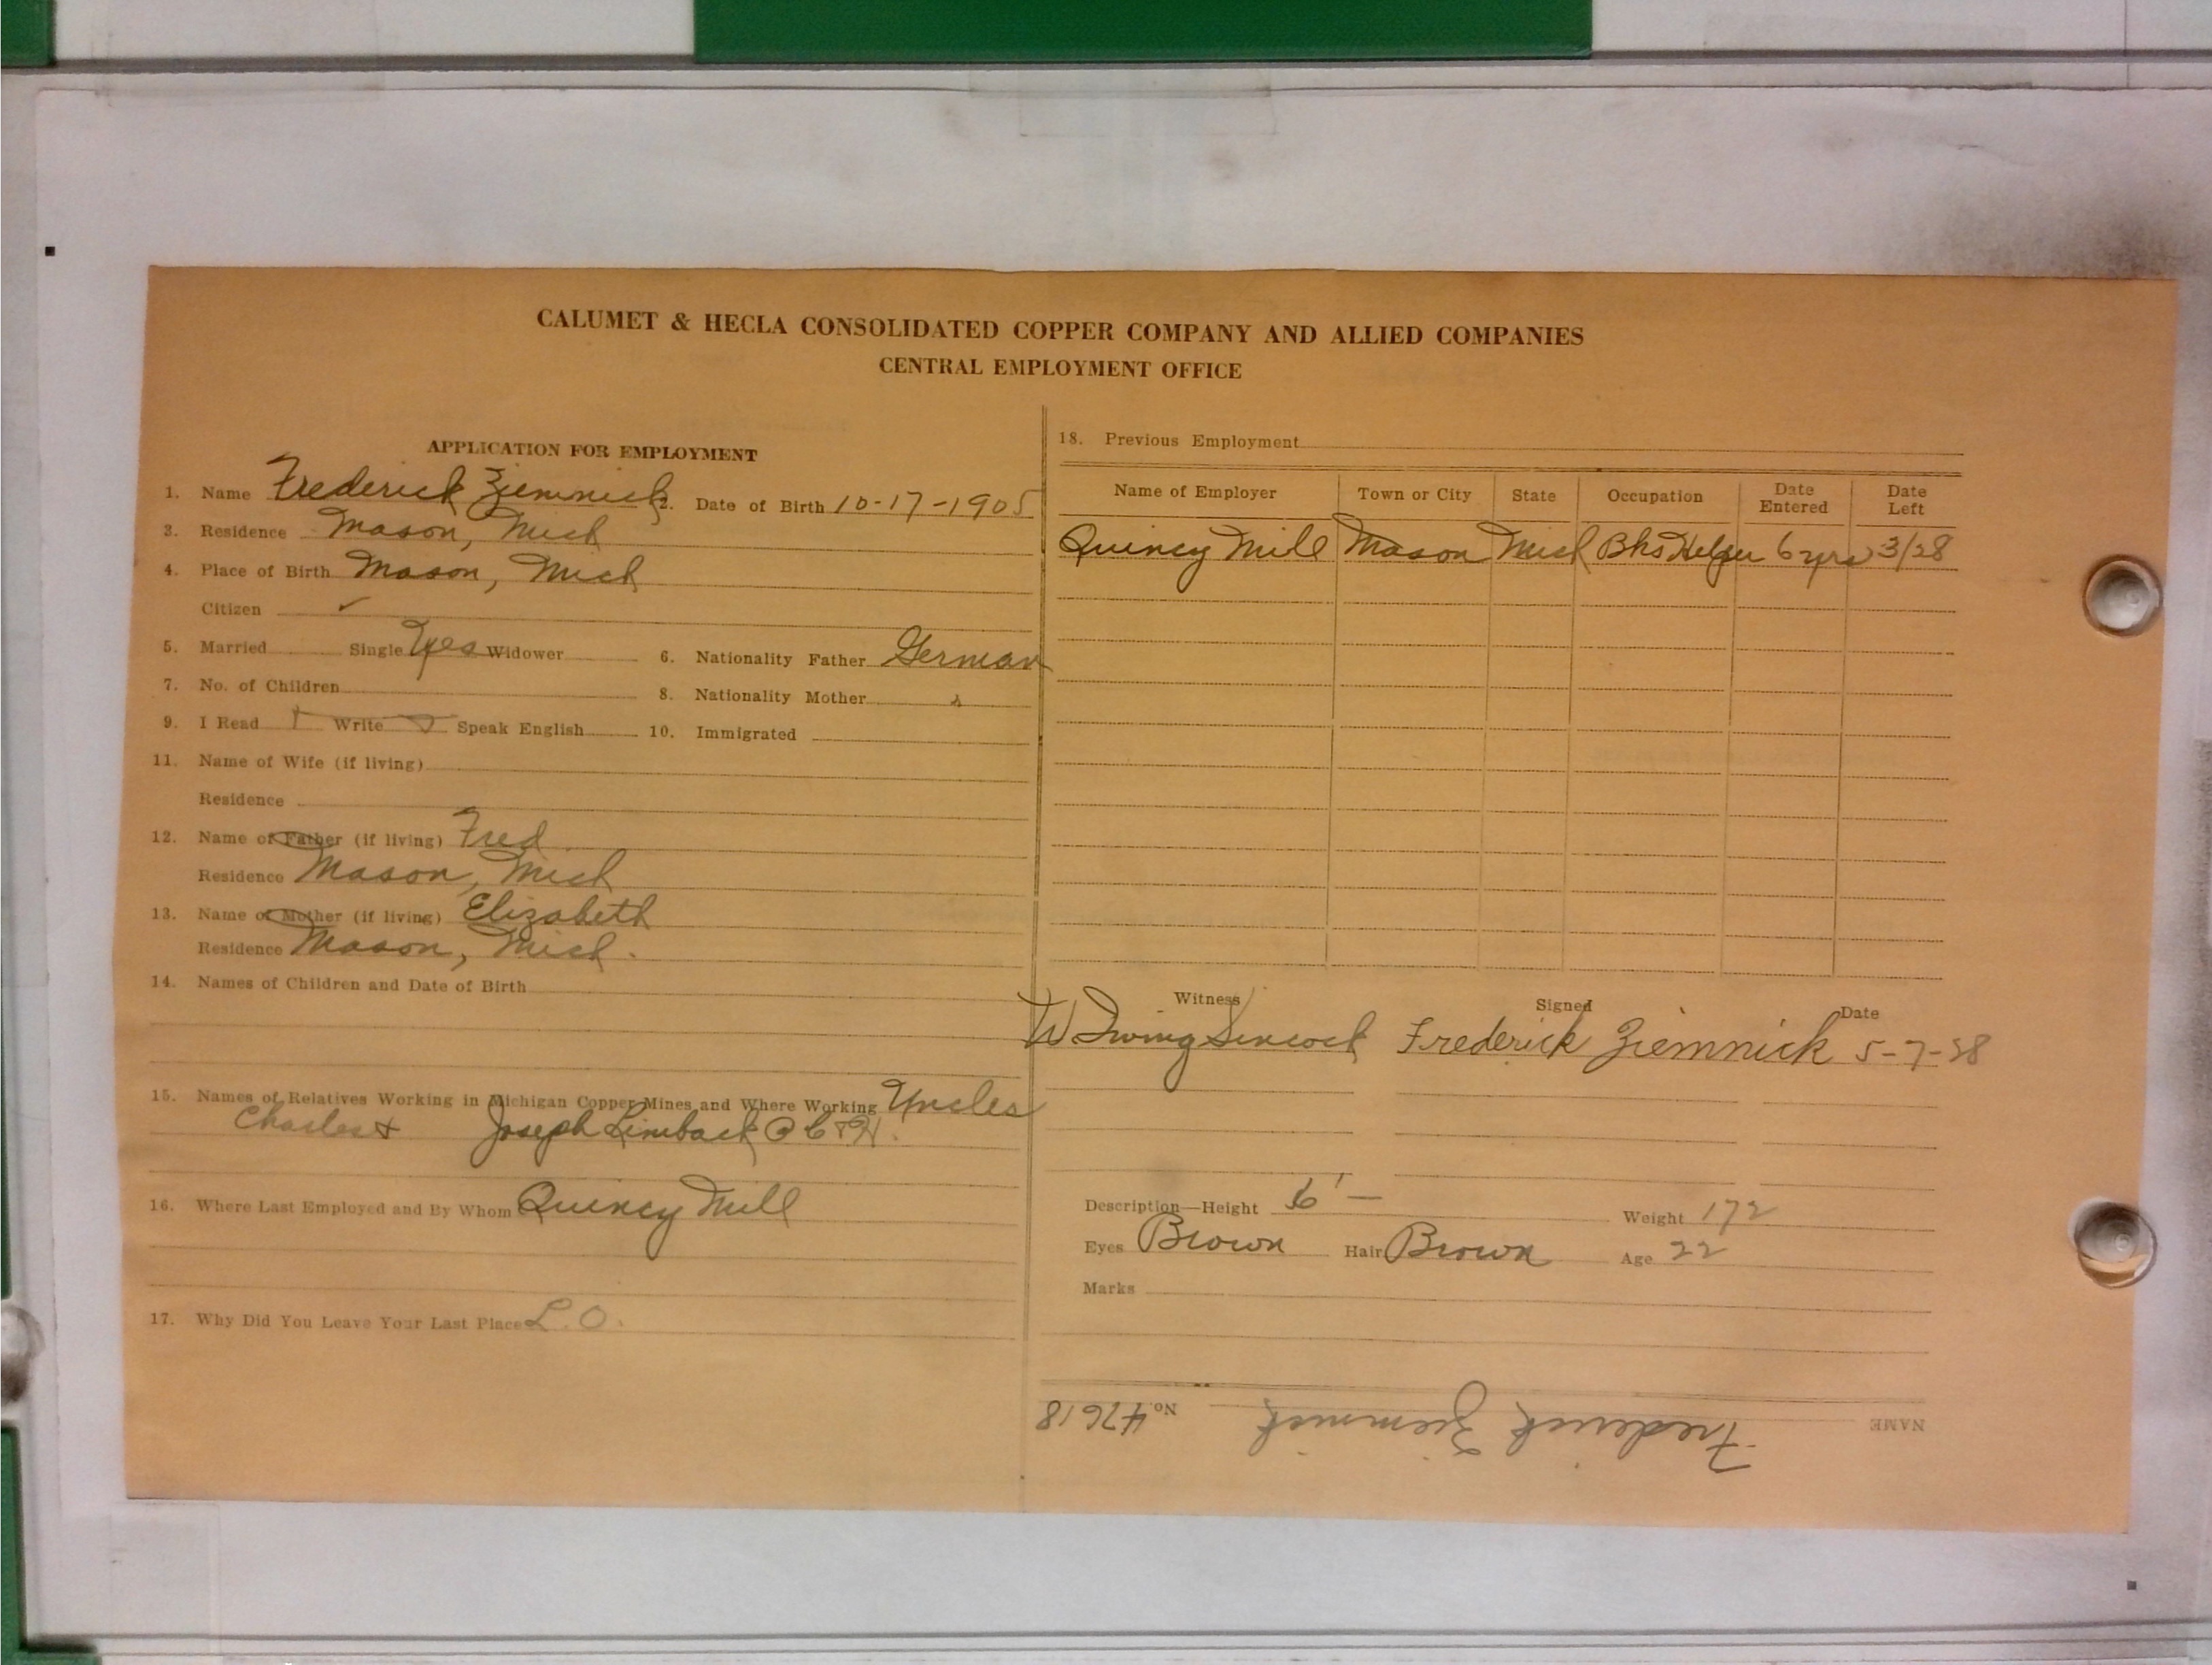 CALUMET & HECLA CONSOLIDATED COPPER COMPANY AND ALLIED COMPANIES
CENTRAL EMPLOYMENT OFFICE
APPLICATION FOR EMPLOYMENT
1. Name Frederick Ziemnick 2. Date of Birth 10-17-1905
3. Residence Mason, Mich
4. Place of Birth Mason, Mich
Citizen ✓
5. Married Single Yes Widower 6. Nationality Father German
7. No. of Children 8. Nationality Mother "
9. I Read Write Speak English 10. Immigrated
11. Name of Wife (if living)
Residence
12. Name of Father (if living) Fred
Residence Mason, Mich
13. Name of Mother (if living) Elizabeth
Residence Mason, Mich.
14. Names of Children and Date of Birth
15. Names of Relatives Working in Michigan Copper Mines and Where Working Uncles
Charles & Joseph Limback @ C & H.
16. Where Last Employed and By Whom Quincy Mill
17. Why Did You Leave Your Last Place L.O.
18. Previous Employment
Name of Employer Town or City State Occupation Date Entered Date Left
Quincy Mill Mason Mich Bhs Helper 6 yrs 3/28
Witness Signed Date
W Irving Sincock Frederick Ziemnick 5-7-28
Description—Height 6' — Weight 172
Eyes Brown Hair Brown Age 22
Marks
NAME Frederick Ziemnick No. 47618